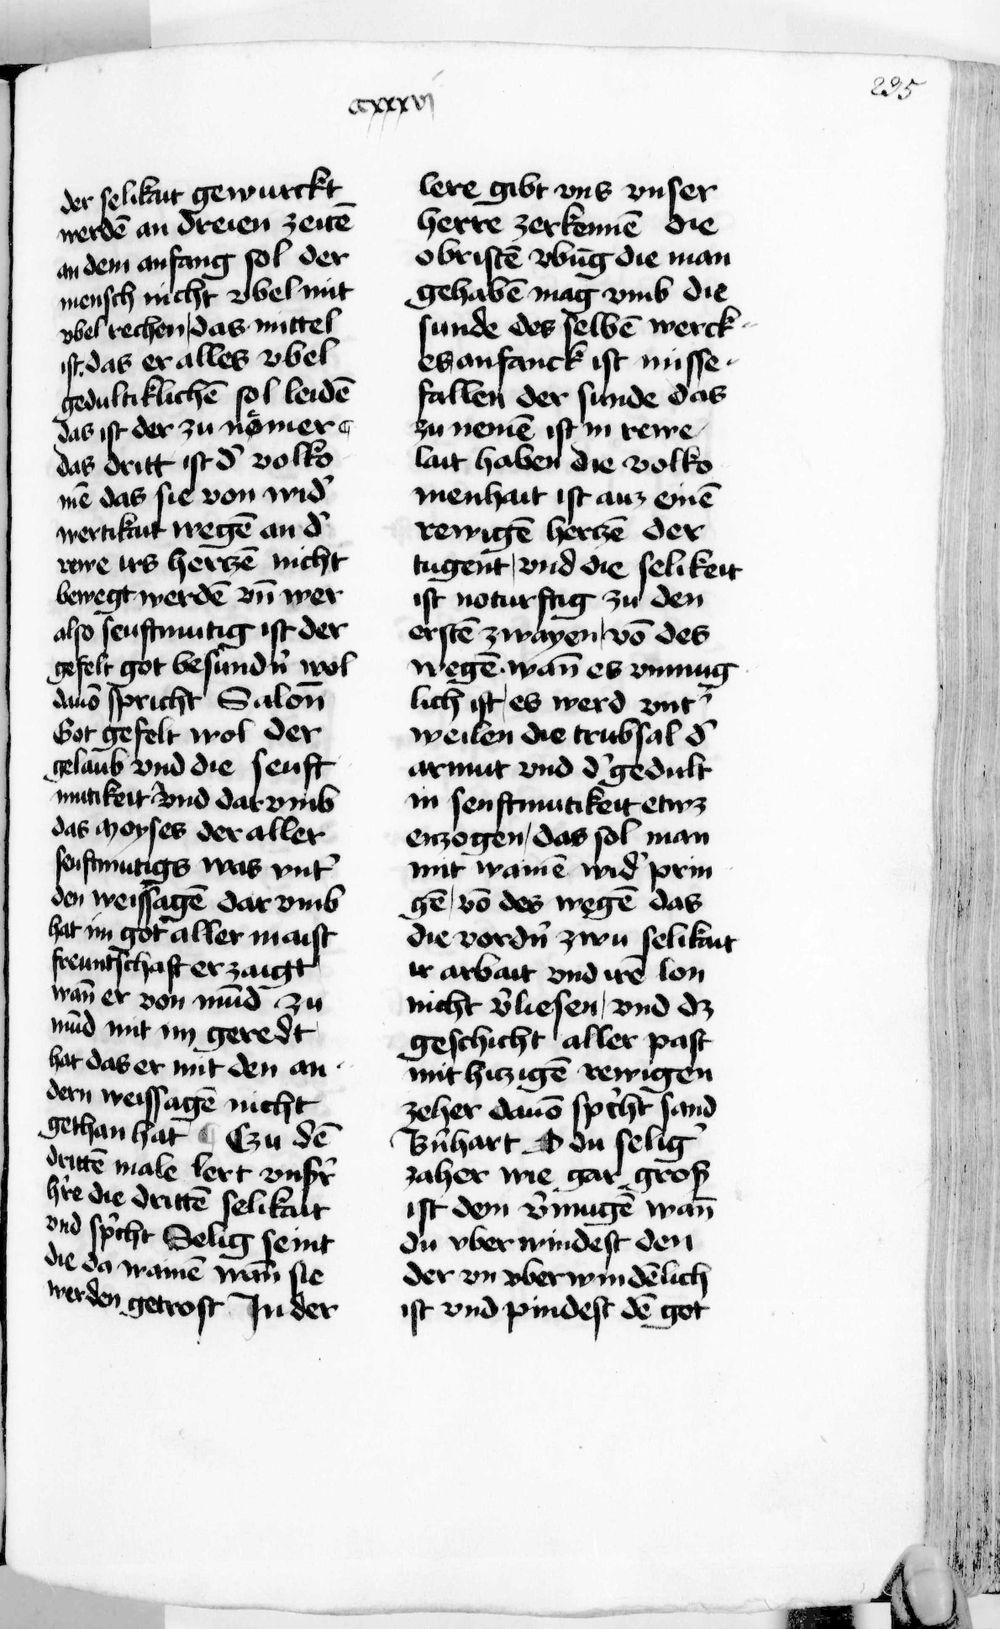 cxxxvj
235
der selikait gewurckt
werdē an dreien zeitē
an dem anfang sol der
mensch nicht vbel mit
vbel rechen das mittel
ist das er alles vbel
gedultiklichē sol leidē
das ist der zu nömer
das dritt ist d' volko
mē das sie von wid'
wertikait wegē an d'
rewe irs hertzē nicht
bewegt werdē vn̄ wer
also senftmutig ist der
gefelt got besūnd'n wol
dauō spricht Salon̄
Got gefelt wol der
gelaub vnd die senft
mutikeit vnd dar vmb
das moyses der aller
senftmutigs was vnt'
den weissagē dar vmb
hat im got aller maist
freuntschaft erzaigt
wan̄ er von mūd zu
mūd mit im geredt
hat das er mit den an
dern weissagē nicht
gethan hat ¶ Czu dē
drittē male lert vns'r
h're die drittē selikait
vnd sp'cht Selig seint
die da wainē wan̄ sie
werden getrost In der
lere gibt vns vnser
herre zerkennē die
obristē vbūg die man
gehabē mag vmb die
sunde des selbē werck
es anfanck ist misse
fallen der sunde das
zu nemē ist in rewe
lait haben die volko
menhait ist auz einē
rewigē hertzē der
tugent vnd die selikeit
ist noturftig zu den
erstē zwayen vō des
wegē wan̄ es vnmug
lich ist es werd vnt'
weilen die trubsal d'
armut vnd d' gedult
in senftmutikeit etwz
enzogen das sol man
mit wainē wid' prin
gē vō des wegē das
die vord'n zwu selikait
ir arbait vnd irē lon
nicht v'liesen vnd dz
geschicht aller past
mit hiczigē rewigen
zeher dauō sp'cht sand
B'nhart O du selig'
zaher wie gar gros
ist dem v'mugē wan̄
du vberwindest den
der vn vberwindēlich
ist vnd pindest dē got